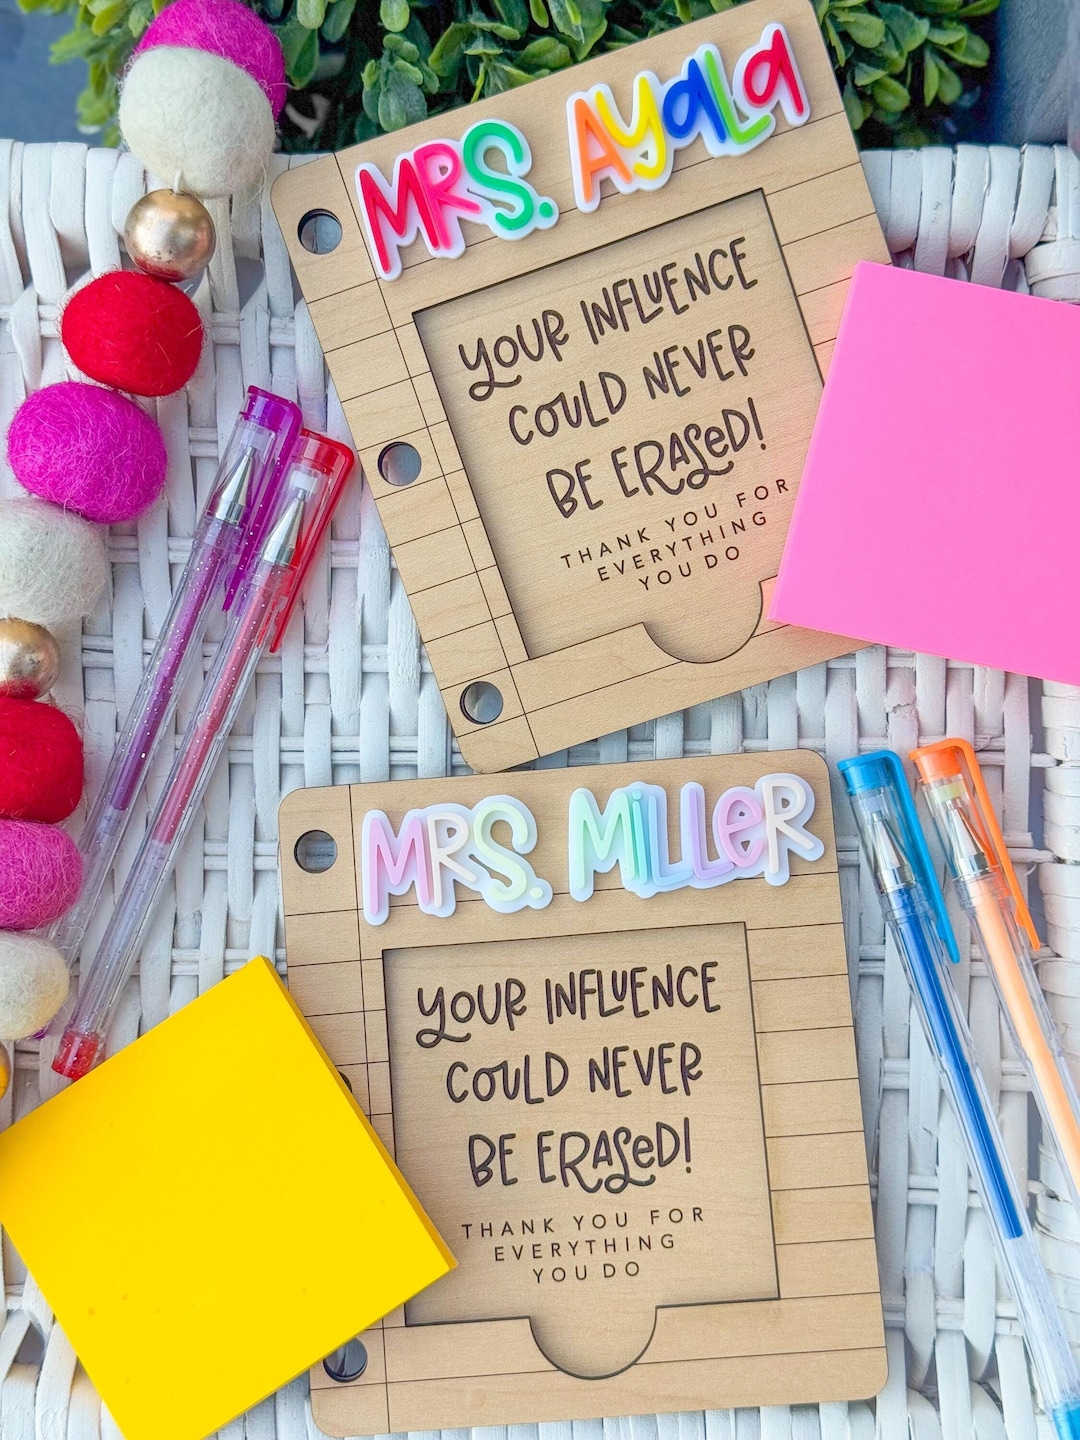 MRS. AyaLa
YOUR INFLUENCE
COULD NEVER
BE ERASeD!
THANK YOU FOR
EVERYTHING
YOU DO
MRS. MiLLeR
YOUR INFLUENCE
COULD NEVER
BE ERASeD!
THANK YOU FOR
EVERYTHING
YOU DO